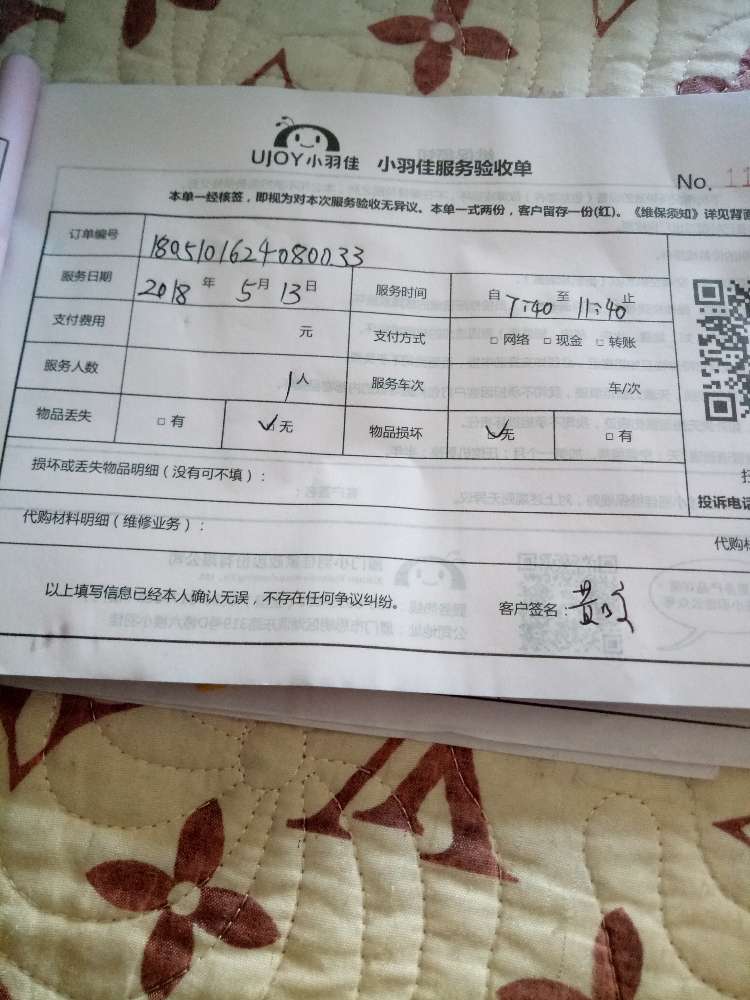 UJOY小羽佳 小羽佳服务验收单
No. 11
本单一经核签，即视为对本次服务验收无异议。本单一式两份，客户留存一份(红)。《维保须知》详见背面
订单编号 1805101624080033
服务日期 2018 年 5月 13日 服务时间 自 7:40 至 11:40 止
支付费用 元 支付方式 □ 网络 □ 现金 □ 转账
服务人数 1人 服务车次 车/次
物品丢失 □ 有 ☑无 物品损坏 ☑无 □ 有
损坏或丢失物品明细（没有可不填）：
投诉电话
代购材料明细（维修业务）：
代购材
以上填写信息已经本人确认无误，不存在任何争议纠纷。 客户签名：黄